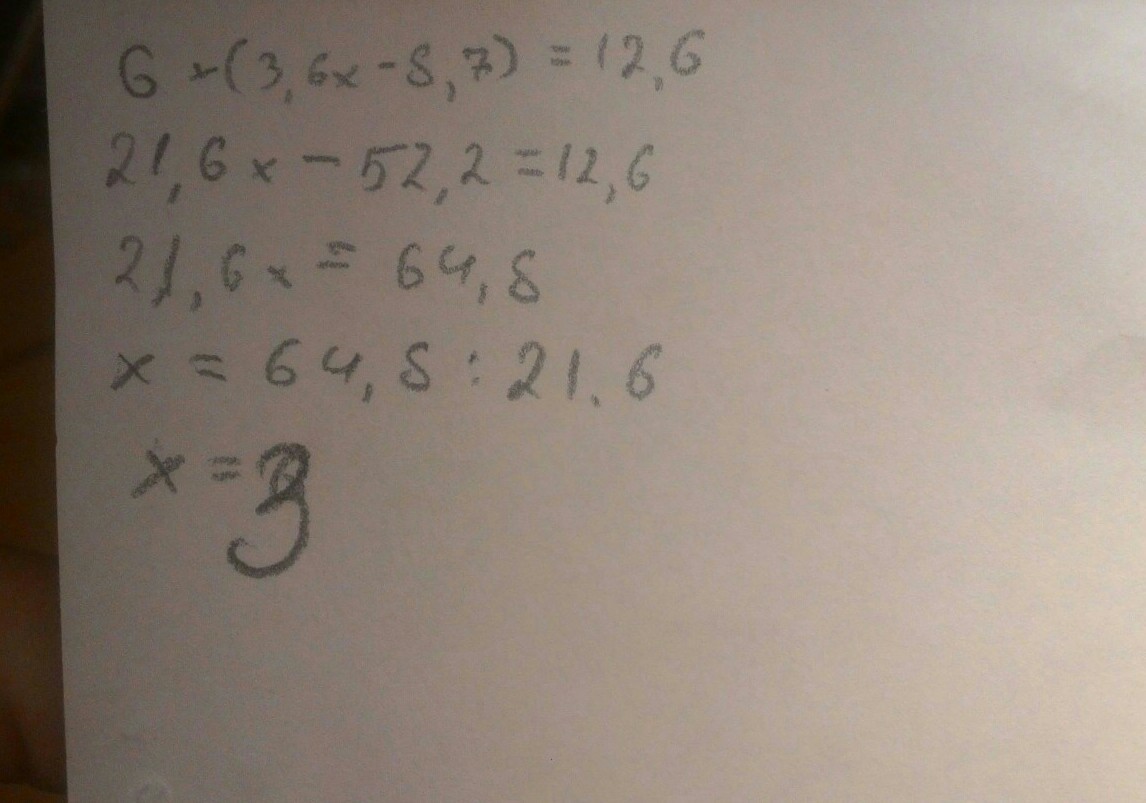 6 × (3,6x - 8,7) = 12,6
21,6x - 52,2 = 12,6
21,6x = 64,8
x = 64,8 : 21.6
x = 3